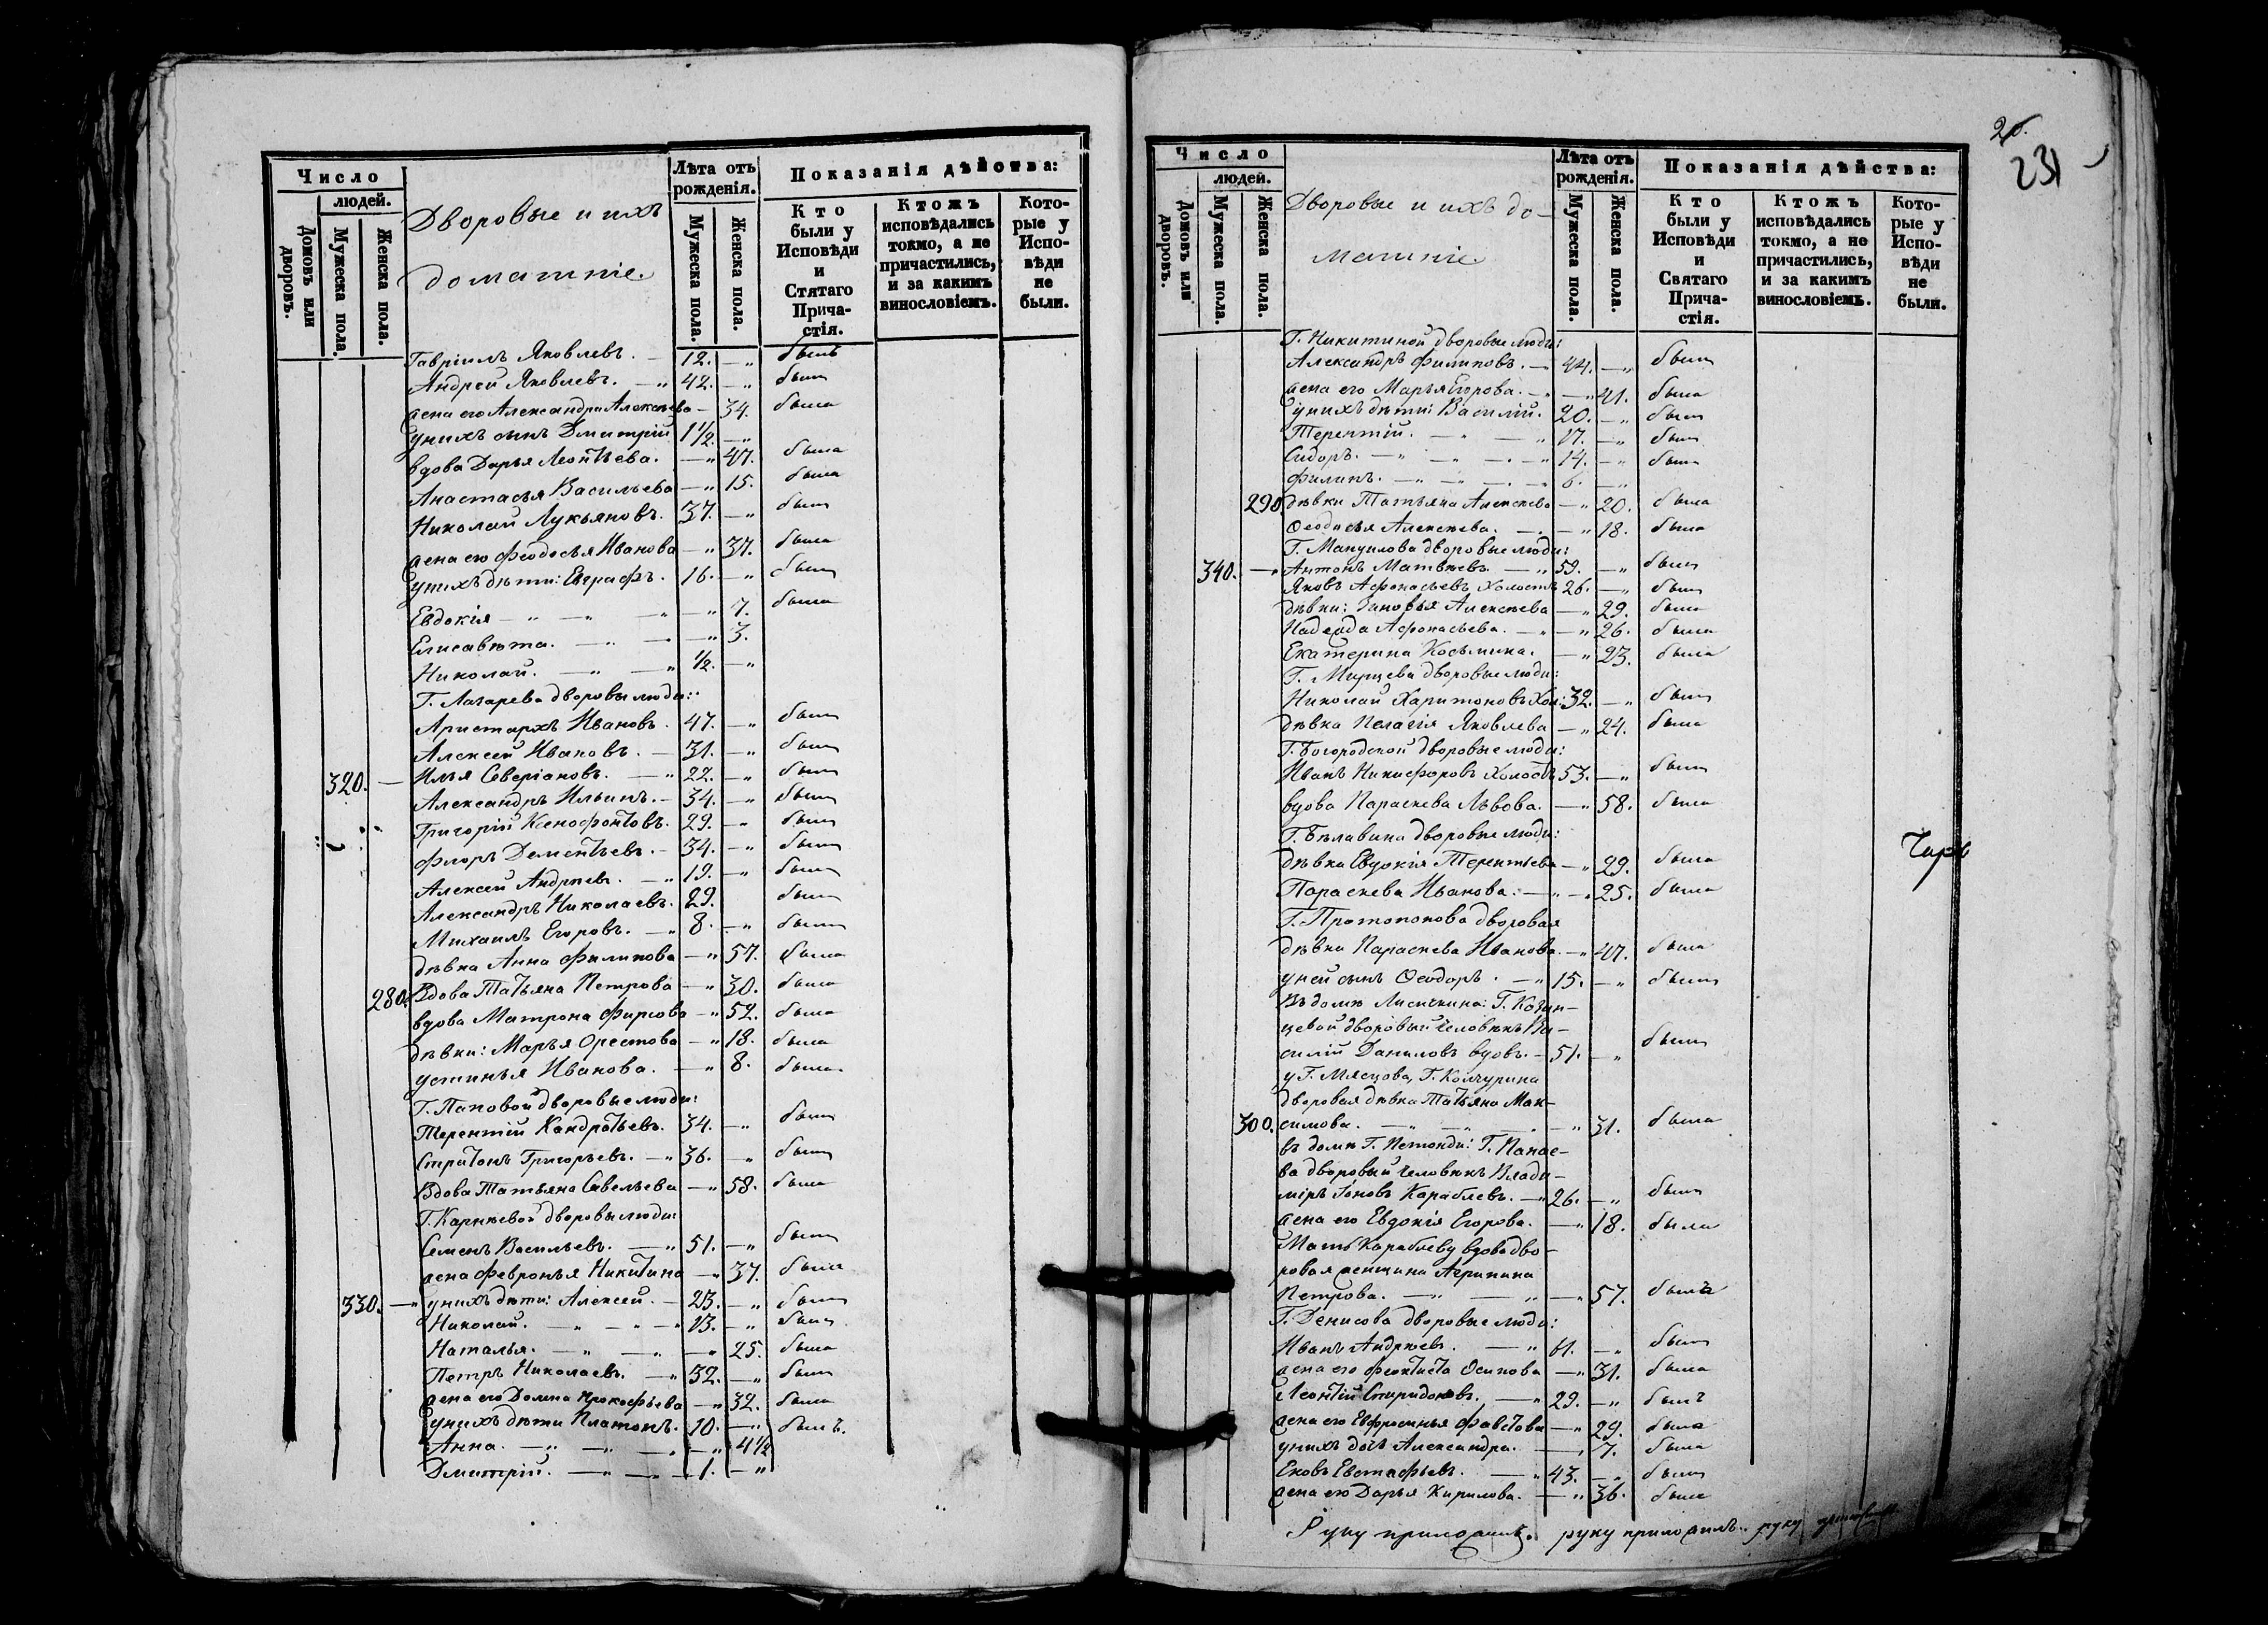 Число
людей.
Домовъ или дворовъ.
Мужеска пола.
Женска пола.
Дворовые и ихъ
домашніе.
Лѣта отъ рожденія.
Мужеска пола.
Женска пола.
Показанія дѣйства:
Кто были у Исповѣди и Стятаго Прича-стія.
Ктожъ исповѣдались токмо, а не причастились, и за какимъ винословіемъ.
Кото-рые у Испо-вѣди не были.
Гавріилъ Яковлевъ. — 12. — „ былъ
Андрей Яковлевъ. — „ 42. — „ былъ
жена его Александра Алексѣева — 34. была
у нихъ сынъ Дмитрій 1½. — „
вдова Дарья Леонтьева. — „ 47. была
Анастасья Васильева — „ 15. была
Николай Лукьяновъ. 37. — „ былъ
жена его Феодосья Иванова — „ 37. была
у нихъ дѣти: Евграфъ. 16. — „ былъ
Евдокія — „ — „ — „ 7. была
Елисавета. — „ — „ 3.
Николай. — „ — „ ½. — „
Г. Лазарева дворовы люди:
Аристархъ Ивановъ. 47. — „ былъ
Алексей Ивановъ. — 31. — „ былъ
320. — Илья Северіановъ. — „ 22. — „ былъ
Александръ Ильинъ. — 34. — „ былъ
Григорій Ксенофонтовъ. 29. — „ былъ
Флоръ Дементьевъ. — 34. — „ былъ
Алексей Андреевъ. — „ 19. — „ былъ
Александръ Николаевъ. 29. былъ
Михаилъ Егоровъ. — „ 8. — „ былъ
дѣвка Анна Филипова — „ 57. была
280. Вдова Татьяна Петрова — „ 30. была
вдова Матрона Фирсова — „ 52. была
дѣвки: Марья Орестова — „ 18. была
Устинья Иванова. — „ 8. была
Г. Пановой дворовые люди:
Терентій Кандратьевъ. 34. — „ былъ
Стратонъ Григорьевъ. — „ 36. — „ былъ
Вдова Татьяна Савельева — „ 58. была
Г. Карнѣевой дворовы люди:
Семенъ Васильевъ. — „ 51. — „ былъ
жена Февронья Никитина — „ 37. была
330. — „ у нихъ дѣти: Алексей. — 23. — „ былъ
Николай. — „ — „ 13. — „ былъ
Наталья. — „ — „ — „ 25. была
Петръ Николаевъ. — „ 32. — „ былъ
жена его Домна Прокофьева — „ 32. была
у нихъ дѣти Платонъ. 10. — „ былъ.
Анна. — „ — „ — „ 4½
Дмитрій. — „ — 1. — „
20.
231
Число
людей.
Домовъ или дворовъ.
Мужеска пола.
Женска пола.
Дворовые и ихъ до-
машніе.
Лѣта отъ рожденія.
Мужеска пола.
Женска пола.
Показанія дѣйства:
Кто были у Исповѣди и Святаго Прича-стія.
Ктожъ исповѣдались токмо, а не причастились, и за какимъ винословіемъ.
Кото-рые у Испо-вѣди не были.
Г. Никитиной дворовые люди:
Александръ Филиповъ. — 44. — „ былъ
жена его Марья Егорова. — „ 41. была
у нихъ дѣти: Василій. 20. — „ былъ
Терентій. — „ — „ 17. — „ былъ
Сидоръ. — „ — „ 14. — „ былъ
Филипъ. — „ — „ 6. — „
290. дѣвки Татьяна Алексѣева — „ 20. была
Ѳеодосья Алексѣева. — „ 18. была
Г. Мануилова дворовые люди:
340. — „ Антонъ Матвѣевъ. — „ 59. — „ былъ
Яковъ Афонасьевъ Холостъ 26. — „ былъ
дѣвки: Зиновья Алексѣева — „ 29. была
Надежда Афонасьева. — „ — „ 26. была
Екатерина Косьмина. — „ 23. была
Г. Мирцева дворовые люди:
Николай Харитоновъ Хол: 32. — „ былъ
дѣвка Пелагія Яковлева — „ 24. была
Г. Богородской дворовые люди:
Иванъ Никифоровъ Холостъ 53. — „ былъ
вдова Параскева Львова. — „ 58. была
Г. Бѣлавина дворовые люди:
дѣвка Евдокія Терентьева — „ 29. была
Параскева Иванова. — „ — „ 25. была
Г. Протопопова дворовая
дѣвка Параскева Иванова. — „ 47. была
у ней сынъ Ѳеодоръ. — „ 15. — „ былъ
Въ домѣ Лисичкина: Г. Казан-
цевой дворовый человѣкъ Ва-
силій Даниловъ вдовъ. — 51. — „ былъ
у Г. Мясцова, Г. Колчурина
дворовая дѣвка Татьяна Мак-
300. симова. — „ — „ — „ 31. была
въ домѣ Г. Петонди: Г. Панае-
ва дворовый человѣкъ Влади-
міръ Іоновъ Караблевъ. — „ 26. — „ былъ
жена его Евдокія Егорова. — „ 18. была
Мать Караблеву вдова дво-
ровая женщина Агрипина
Петрова. — „ — „ — „ 57. была
Г. Денисова дворовые люди:
Иванъ Андреевъ. — „ 61. — „ былъ
жена его Феоктиста Осипова — „ 31. была
Леонтій Спиридоновъ. — „ 29. — „ былъ
жена его Евфросинья Фавстова — „ 29. была
у нихъ дочь Александра. — „ 7. была
Яковъ Евстафьевъ. — „ 43. — „ былъ
жена его Дарья Кирилова. — „ 36. была
Руку приложилъ. руку приложилъ. руку